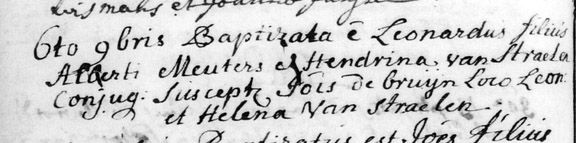 et Joanna
6to 9bris Baptizata ē Leonardus filius
Alberti Meuters et Hendrina van Straelen
Conjug: Suscept Jōis de bruijn Loco Leon:
et Helena Van Straelen
Baptizatus est Joēs filius